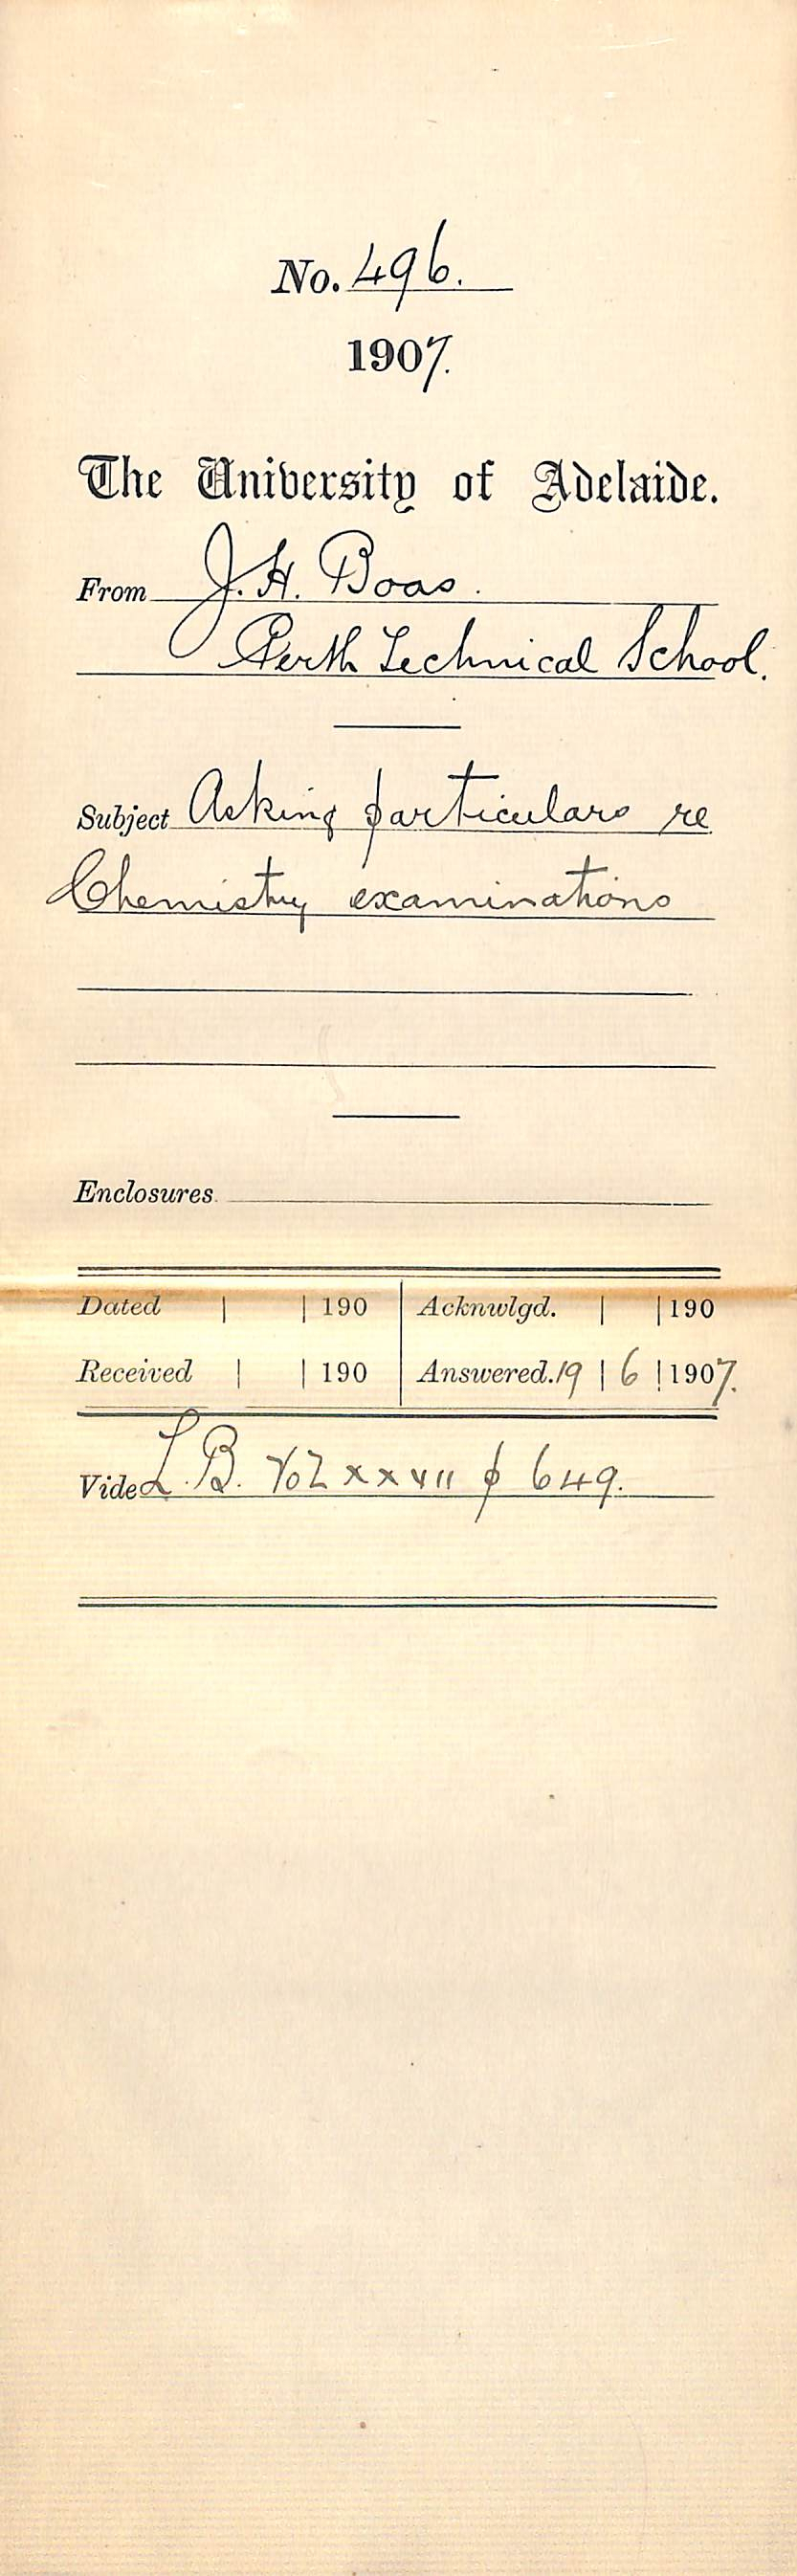 No. 496.
1907.
The University of Adelaide.
From J. H. Boas.
Perth Technical School.
Subject Asking particulars re
Chemistry examinations
Enclosures
Dated | | 190 Acknwlgd. | | 190
Received | | 190 Answered. 19 | 6 | 1907.
Vide L.B. Vol xxvii p 649.